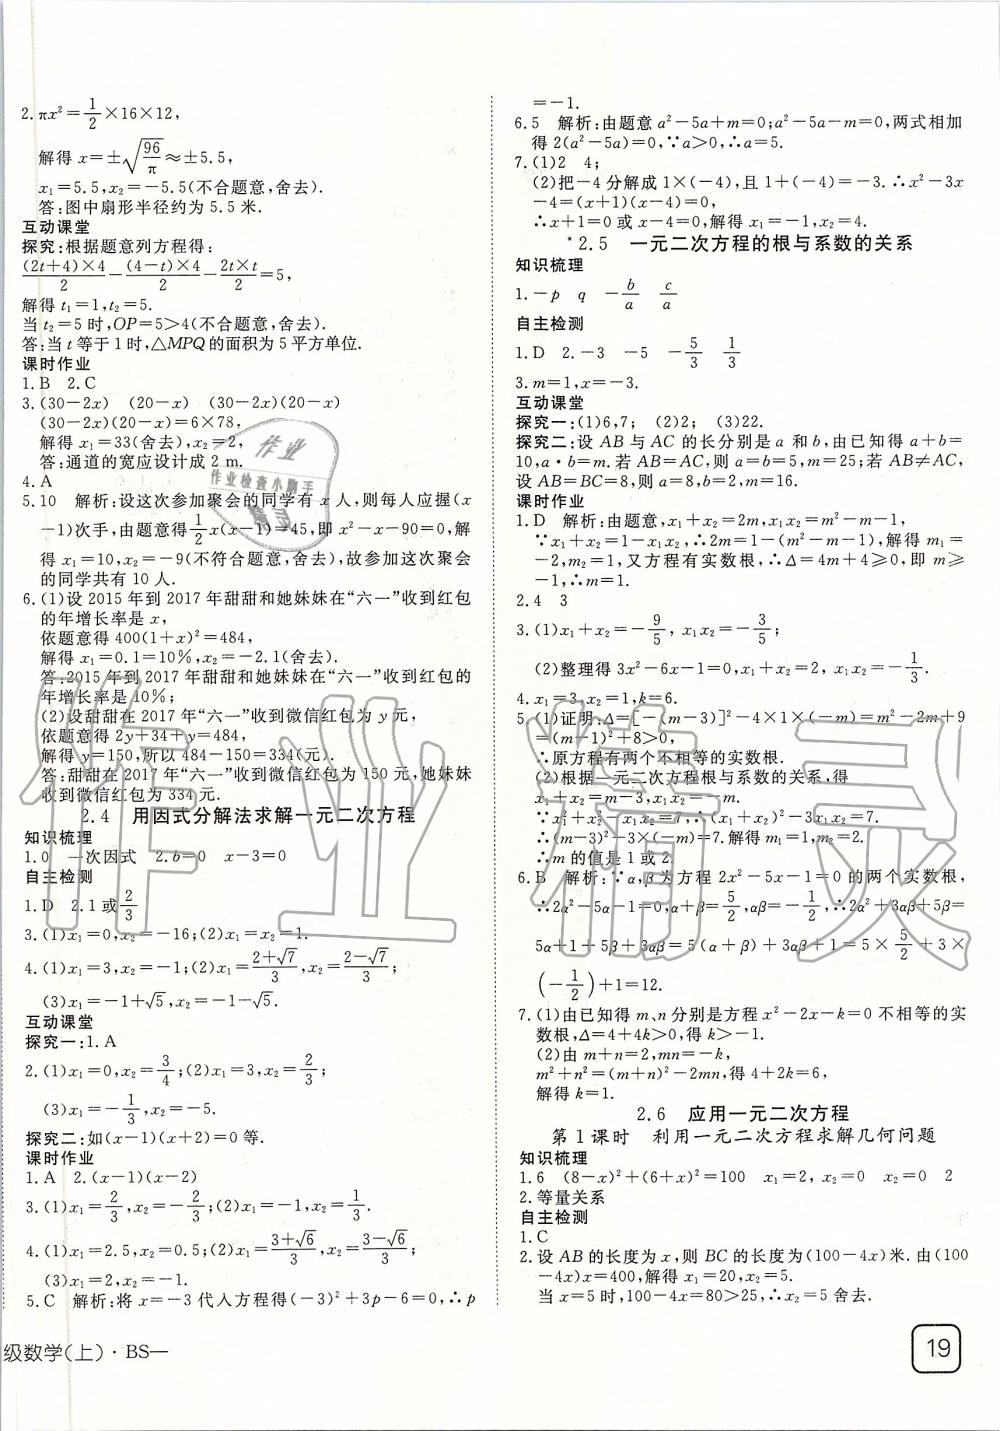 2.πx²=1/2×16×12,
解得 x=±√(96/π)≈±5.5,
x₁=5.5,x₂=-5.5(不合题意,舍去).
答:图中扇形半径约为 5.5 米.
互动课堂
探究:根据题意列方程得:
(2t+4)×4/2-(4-t)×4/2-2t×t/2=5,
解得 t₁=1,t₂=5.
当 t₂=5 时,OP=5>4(不合题意,舍去).
答:当 t 等于 1 时,△MPQ 的面积为 5 平方单位.
课时作业
1.B 2.C
3.(30-2x) (20-x) (30-2x)(20-x)
(30-2x)(20-x)=6×78,
解得 x₁=33(舍去),x₂=2,
答:通道的宽应设计成 2 m.
4.A
5.10 解析:设这次参加聚会的同学有 x 人,则每人应握(x
-1)次手,由题意得1/2x(x-1)=45,即 x²-x-90=0,解
得 x₁=10,x₂=-9(不符合题意,舍去),故参加这次聚会
的同学共有 10 人.
6.(1)设 2015 年到 2017 年甜甜和她妹妹在“六一”收到红包
的年增长率是 x,
依题意得 400(1+x)²=484,
解得 x₁=0.1=10%,x₂=-2.1(舍去).
答:2015 年到 2017 年甜甜和她妹妹在“六一”收到红包的
年增长率是 10%;
(2)设甜甜在 2017 年“六一”收到微信红包为 y 元,
依题意得 2y+34+y=484,
解得 y=150,所以 484-150=334(元).
答:甜甜在 2017 年“六一”收到微信红包为 150 元,她妹妹
收到微信红包为 334 元.
2.4 用因式分解法求解一元二次方程
知识梳理
1.0 一次因式 2.b=0 x-3=0
自主检测
1.D 2.1 或2/3
3.(1)x₁=0,x₂=-16;(2)x₁=x₂=-1.
4.(1)x₁=3,x₂=-1;(2)x₁=(2+√7)/3,x₂=(2-√7)/3;
(3)x₁=-1+√5,x₂=-1-√5.
互动课堂
探究一:1.A
2.(1)x₁=0,x₂=3/4;(2)x₁=3,x₂=2/3;
(3)x₁=-1/3,x₂=-5.
探究二:如(x-1)(x+2)=0 等.
课时作业
1.A 2.(x-1)(x-2)
3.(1)x₁=2/3,x₂=-2/3;(2)x₁=-1,x₂=1/3.
4.(1)x₁=2.5,x₂=0.5;(2)x₁=(3+√6)/3,x₂=(3-√6)/3;
(3)x₁=2,x₂=-1.
5.C 解析:将 x=-3 代人方程得(-3)²+3p-6=0,∴p
=-1.
6.5 解析:由题意 a²-5a+m=0;a²-5a-m=0,两式相加
得 2(a²-5a)=0,∵a>0,∴a=5.
7.(1)2 4;
(2)把-4 分解成 1×(-4),且 1+(-4)=-3.∴x²-3x
-4=(x+1)(x-4)=0,
∴x+1=0 或 x-4=0,解得 x₁=-1,x₂=4.
*2.5 一元二次方程的根与系数的关系
知识梳理
1.-p q -b/a c/a
自主检测
1.D 2.-3 -5 -5/3 1/3
3.m=1,x=-3.
互动课堂
探究一:(1)6,7; (2)2; (3)22.
探究二:设 AB 与 AC 的长分别是 a 和 b,由已知得 a+b=
10,a·b=m.若 AB=AC,则 a=b=5,m=25;若 AB≠AC,
设 AB=BC=8,则 a=8,b=2,m=16.
课时作业
1.D 解析:由题意,x₁+x₂=2m,x₁x₂=m²-m-1,
∵x₁+x₂=1-x₁x₂,∴2m=1-(m²-m-1),解得 m₁=
-2,m₂=1,又方程有实数根,∴Δ=4m+4⩾0,即 m⩾
-1,∴m=1.
2.4 3
3.(1)x₁+x₂=-9/5, x₁x₂=-3/5;
(2)整理得 3x²-6x-1=0,x₁+x₂=2, x₁x₂=-1/3.
4.x₁=3,x₂=1,k=6.
5.(1)证明:Δ=[-(m-3)]²-4×1×(-m)=m²-2m+9
=(m-1)²+8>0,
∴原方程有两个不相等的实数根.
(2)根据一元二次方程根与系数的关系,得
x₁+x₂=m-3,x₁x₂=-m.
∵x₁²+x₂²-x₁x₂=7,∴(x₁+x₂)²-3x₁x₂=7.
∴(m-3)²-3(-m)=7.解得 m₁=1,m₂=2.
∴m 的值是 1 或 2.
6.B 解析:∵α,β为方程 2x²-5x-1=0 的两个实数根,
∴2α²-5α-1=0,α+β=5/2,αβ=-1/2,∴2α²+3αβ+5β=
5α+1+5β+3αβ=5(α+β)+3αβ+1=5×5/2+3×
(-1/2)+1=12.
7.(1)由已知得 m、n 分别是方程 x²-2x-k=0 不相等的实
数根,Δ=4+4k>0,解得 k>-1.
(2)由 m+n=2,mn=-k,
m²+n²=(m+n)²-2mn,得 4+2k=6,
解得 k=1.
2.6 应用一元二次方程
第 1 课时 利用一元二次方程求解几何问题
知识梳理
1.6 (8-x)²+(6+x)²=100 x₁=2, x₂=0 0 2
2.等量关系
自主检测
1.C
2.设 AB 的长度为 x,则 BC 的长度为(100-4x)米.由(100
-4x)x=400,解得 x₁=20,x₂=5.
当 x=5 时,100-4x=80>25,∴x₂=5 舍去.
级数学(上)·BS—
19
作业
作业检查小助手
作业精灵